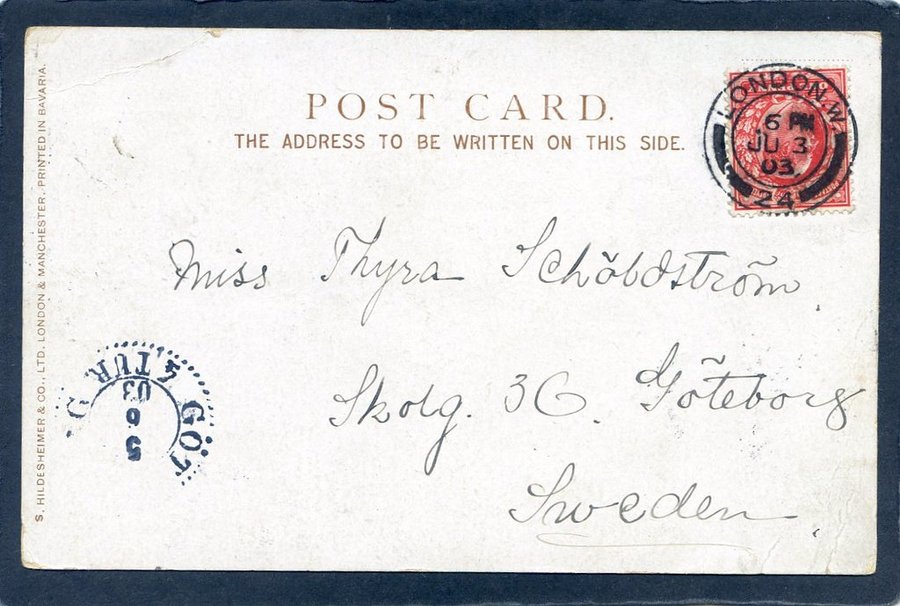 POST CARD.
THE ADDRESS TO BE WRITTEN ON THIS SIDE.
LONDON.W.
6 PM
JU 3
03
24
Miss Thyra Schöldström
Skolg. 36. Göteborg
Sweden
GÖT
4 TUR
03
6
5
S. HILDESHEIMER & CO., LTD. LONDON & MANCHESTER. PRINTED IN BAVARIA.